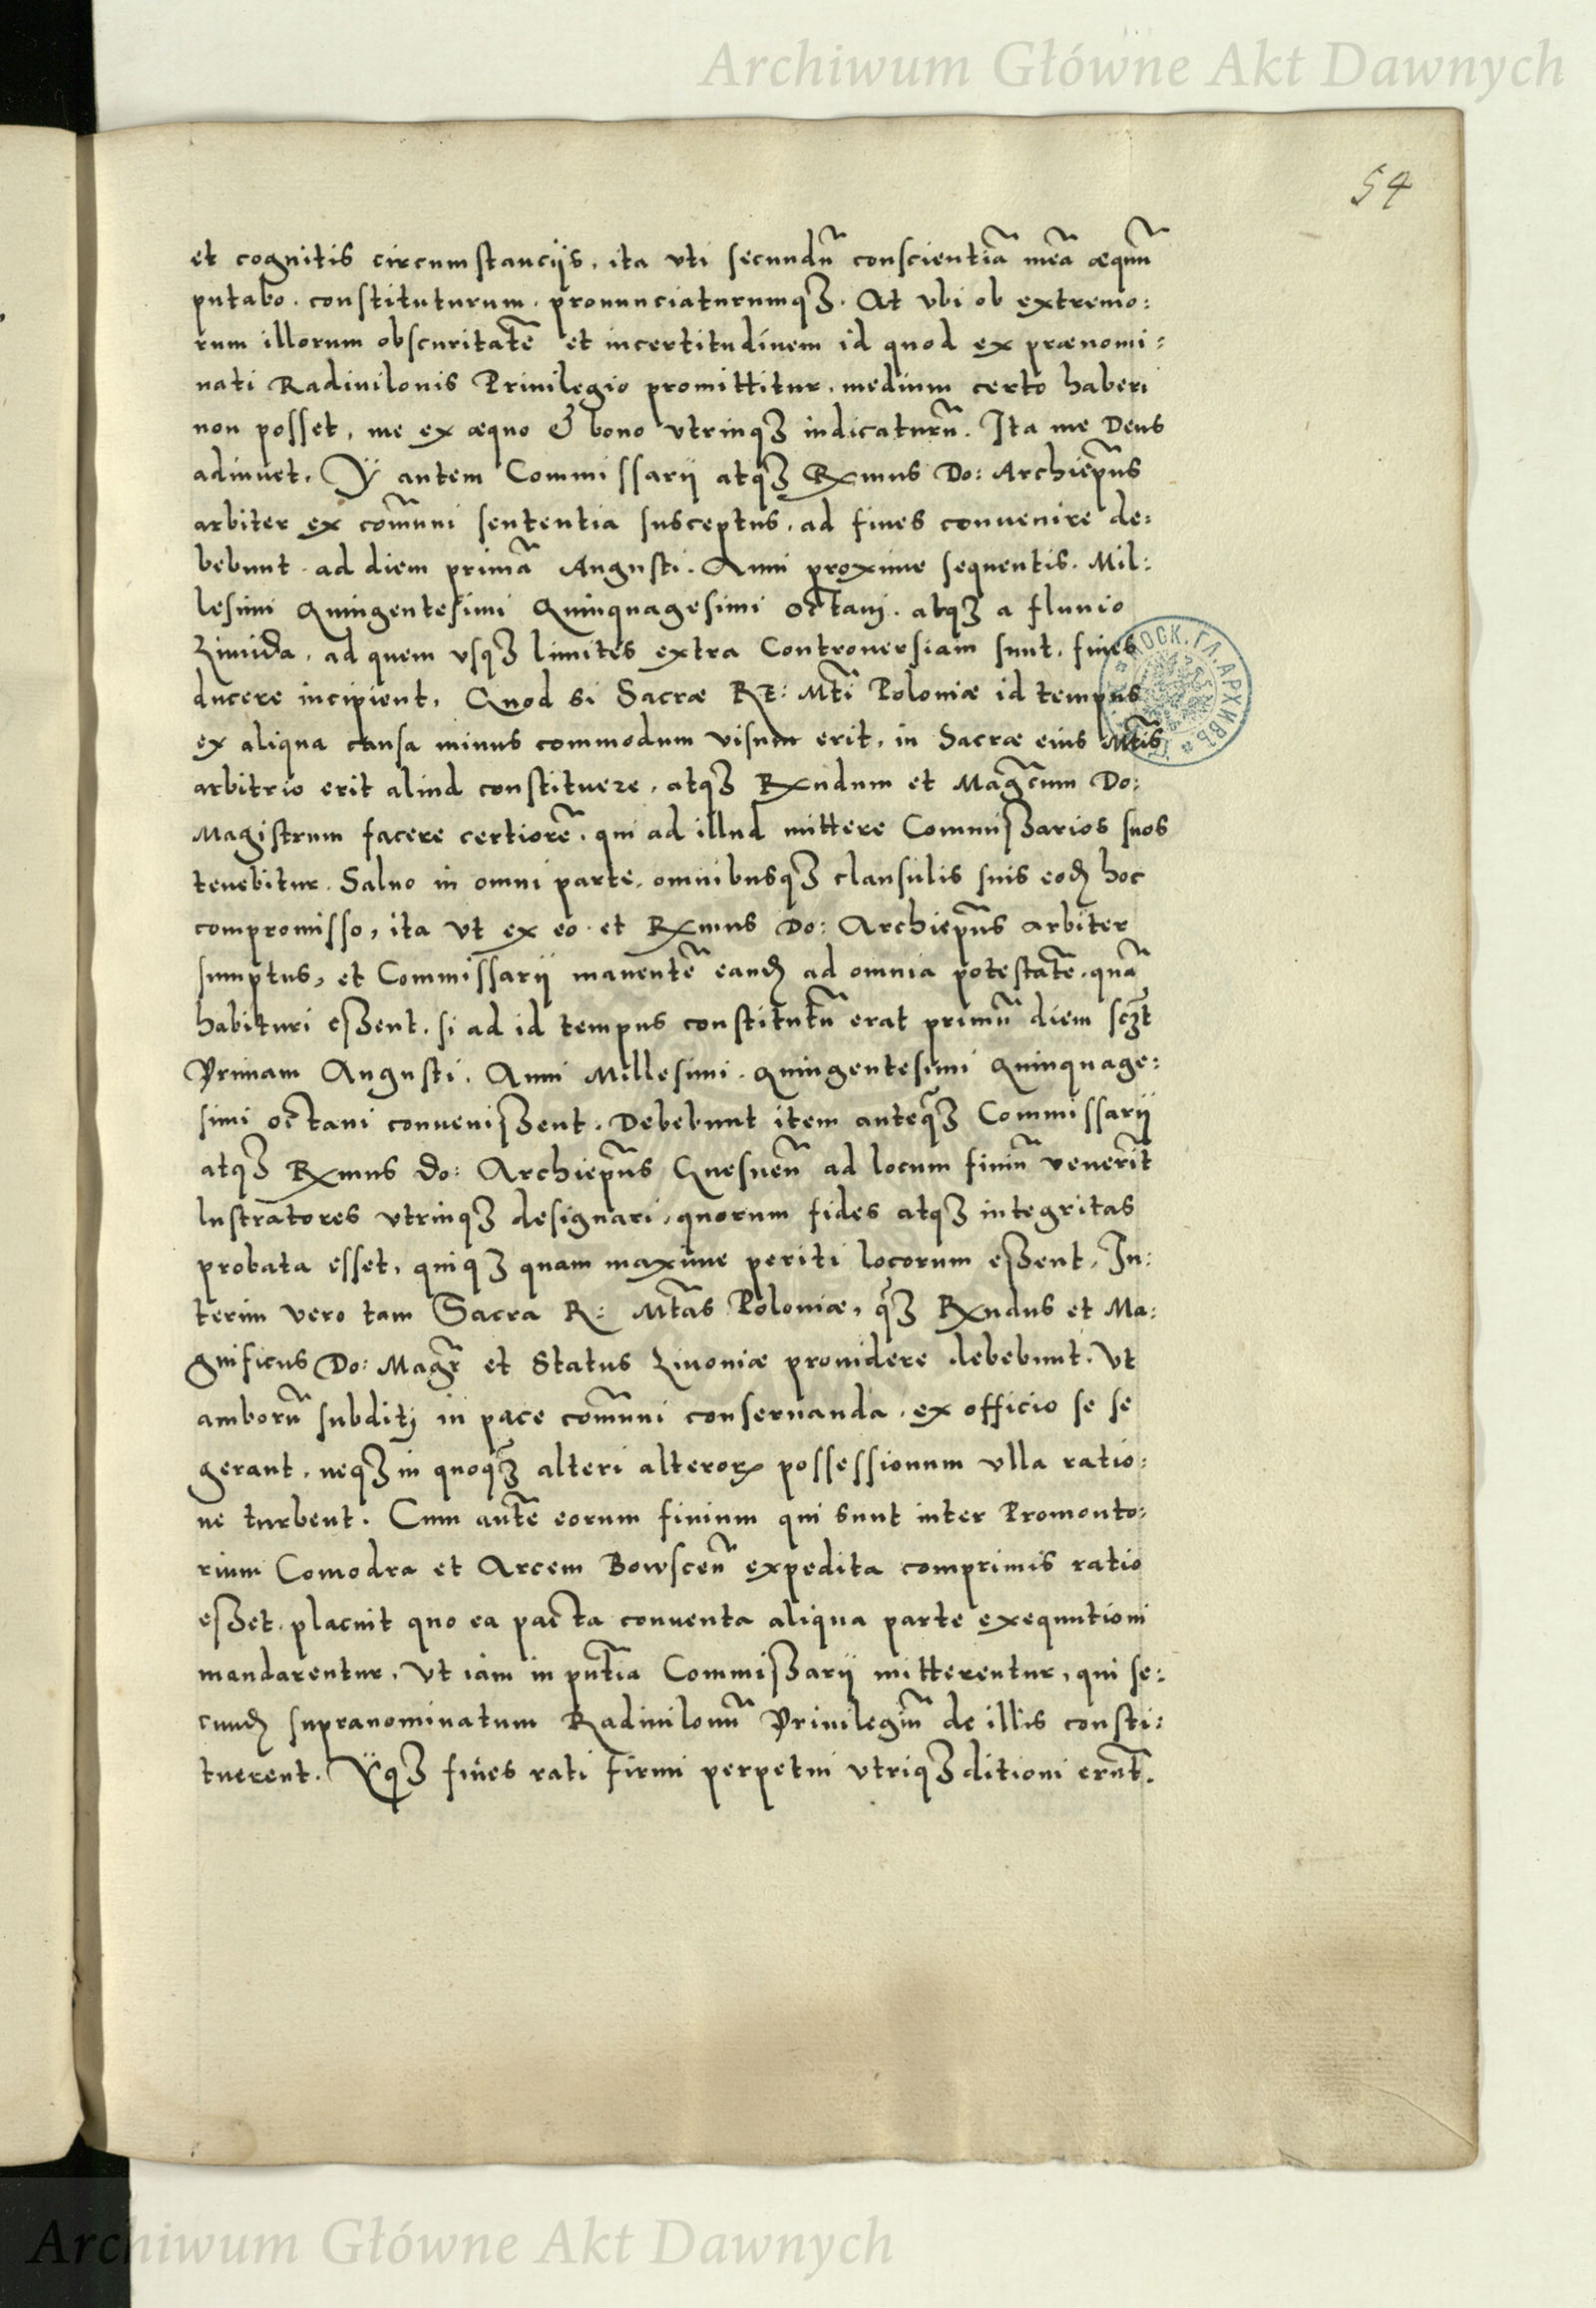 Archiwum Główne Akt Dawnych
54
et cognitis circumstancijs, ita vti secundũ conscientiã meã æquũ
putabo. constituturum. pronunciaturumqȝ. At vbi ob extremo:
rum illorum obscuritatẽ et incertitudinem id quod ex prænomi:
nati Radiuilonis Priuilegio promittitur, medium certo haberi
non posset, me ex æquo & bono vtrinqȝ iudicaturũ. Ita me Deus
adiuuet. Ij autem Commissarij atqȝ Rxmus Do: Archiepũs
arbiter ex cõmuni sententia susceptus, ad fines conuenire de:
bebunt. ad diem primã Augusti. Anni proxime sequentis. Mil:
lesimi Quingentesimi Quinquagesimi octaui. atqȝ a fluuio
ad quem vsqȝ limites extra Controuersiam sunt, fines
ducere incipient, Quod si Sacræ RE: Mti Poloniæ id tempus
ex aliqua causa minus commodum visum erit, in Sacræ eius Mtis
arbitrio erit aliud constituere, atqȝ Rxndum et Magcum Do:
Magistrum facere certiorẽ, qui ad illud mittere Commißarios suos
tenebitur. Saluo in omni parte, omnibusqȝ clausulis suis eodẽ hoc
compromisso, ita vt ex eo et Rxmus Do: Archiepũs arbiter
sumptus, et Commissarij mauentẽ eandẽ ad omnia potestatẽ, quã
habituri eßent, si ad id tempus constitutũ erat primũ diem sczt
Primam Augusti, Anni Millesimi. Quingentesimi Quinquage:
simi octaui conuenißent. Debebunt item anteqȝ Commissarij
atqȝ Rxmus do: Archiepũs Gnesneñ ad locum finiũ venerĩt
lustratores vtrinqȝ designari, quorum fides atqȝ integritas
probata esset, quiqȝ quam maxime periti locorum eßent, In:
terim vero tam Sacra R: Mtas Poloniæ, qȝ Rxndus et Ma:
gnificus Do: Magr̃ et Status Liuoniæ prouidere debebunt. Vt
amborũ subditj in pace cõmuni conseruanda, ex officio se se
gerant, neqȝ in quoqȝ alteri alterorꝝ possessionum vlla ratio:
ne turbent. Cum autẽ eorum finium qui sunt inter Promonto:
rium Comodra et Arcem Bowsceñ expedita comprimis ratio
eßet, placuit quo ea pacta conuenta aliqua parte exequutioni
mandarentur, Vt iam in pñtia Commißarij mitterentur, qui se:
cundẽ supranominatum Radiuilonũ Priuilegiũ de illis consti:
tuerent. Ijqȝ fines rati firmi perpetui vtriqȝ ditioni erũt.
Archiwum Główne Akt Dawnych